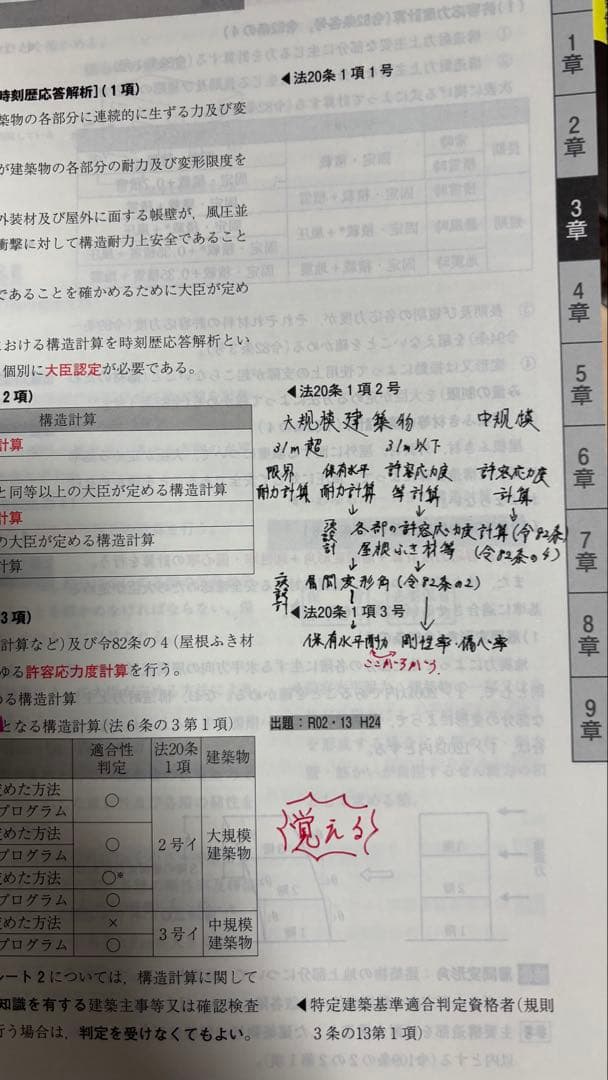 ◀法20条1項1号
時刻歴応答解析](1項)
築物の各部分に連続的に生ずる力及び変
が建築物の各部分の耐力及び変形限度を
外装材及び屋外に面する帳壁が、風圧並
衝撃に対して構造耐力上安全であること
であることを確かめるために大臣が定め
における構造計算を時刻歴応答解析とい
個別に大臣認定が必要である。
◀法20条1項2号
2項)
構造計算
計算
と同等以上の大臣が定める構造計算
計算
の大臣が定める構造計算
計算
大規模建築物 中規模
31m超 31m以下
限界 保有水平 許容応力度 許容応力度
耐力計算 耐力計算 等計算 計算
各部の許容応力度計算(令82条)
屋根ふき材等 (令82条の4)
層間変形角(令82条の2)
◀法20条1項3号
保有水平耐力 剛性率・偏心率
ここが
3項)
計算など)及び令82条の4(屋根ふき材
ゆる許容応力度計算を行う。
める構造計算
となる構造計算(法6条の3第1項)
出題:R02・13 H24
適合性判定 法20条1項 建築物
定めた方法 ○
プログラム
定めた方法 ○
プログラム
定めた方法 ○*
プログラム ○
2号イ 大規模建築物
定めた方法 ×
プログラム ○
3号イ 中規模建築物
覚える
ルート2については、構造計算に関して
知識を有する建築主事等又は確認検査
行う場合は、判定を受けなくてもよい。
◀特定建築基準適合判定資格者(規則
3条の13第1項)
1章
2章
3章
4章
5章
6章
7章
8章
9章